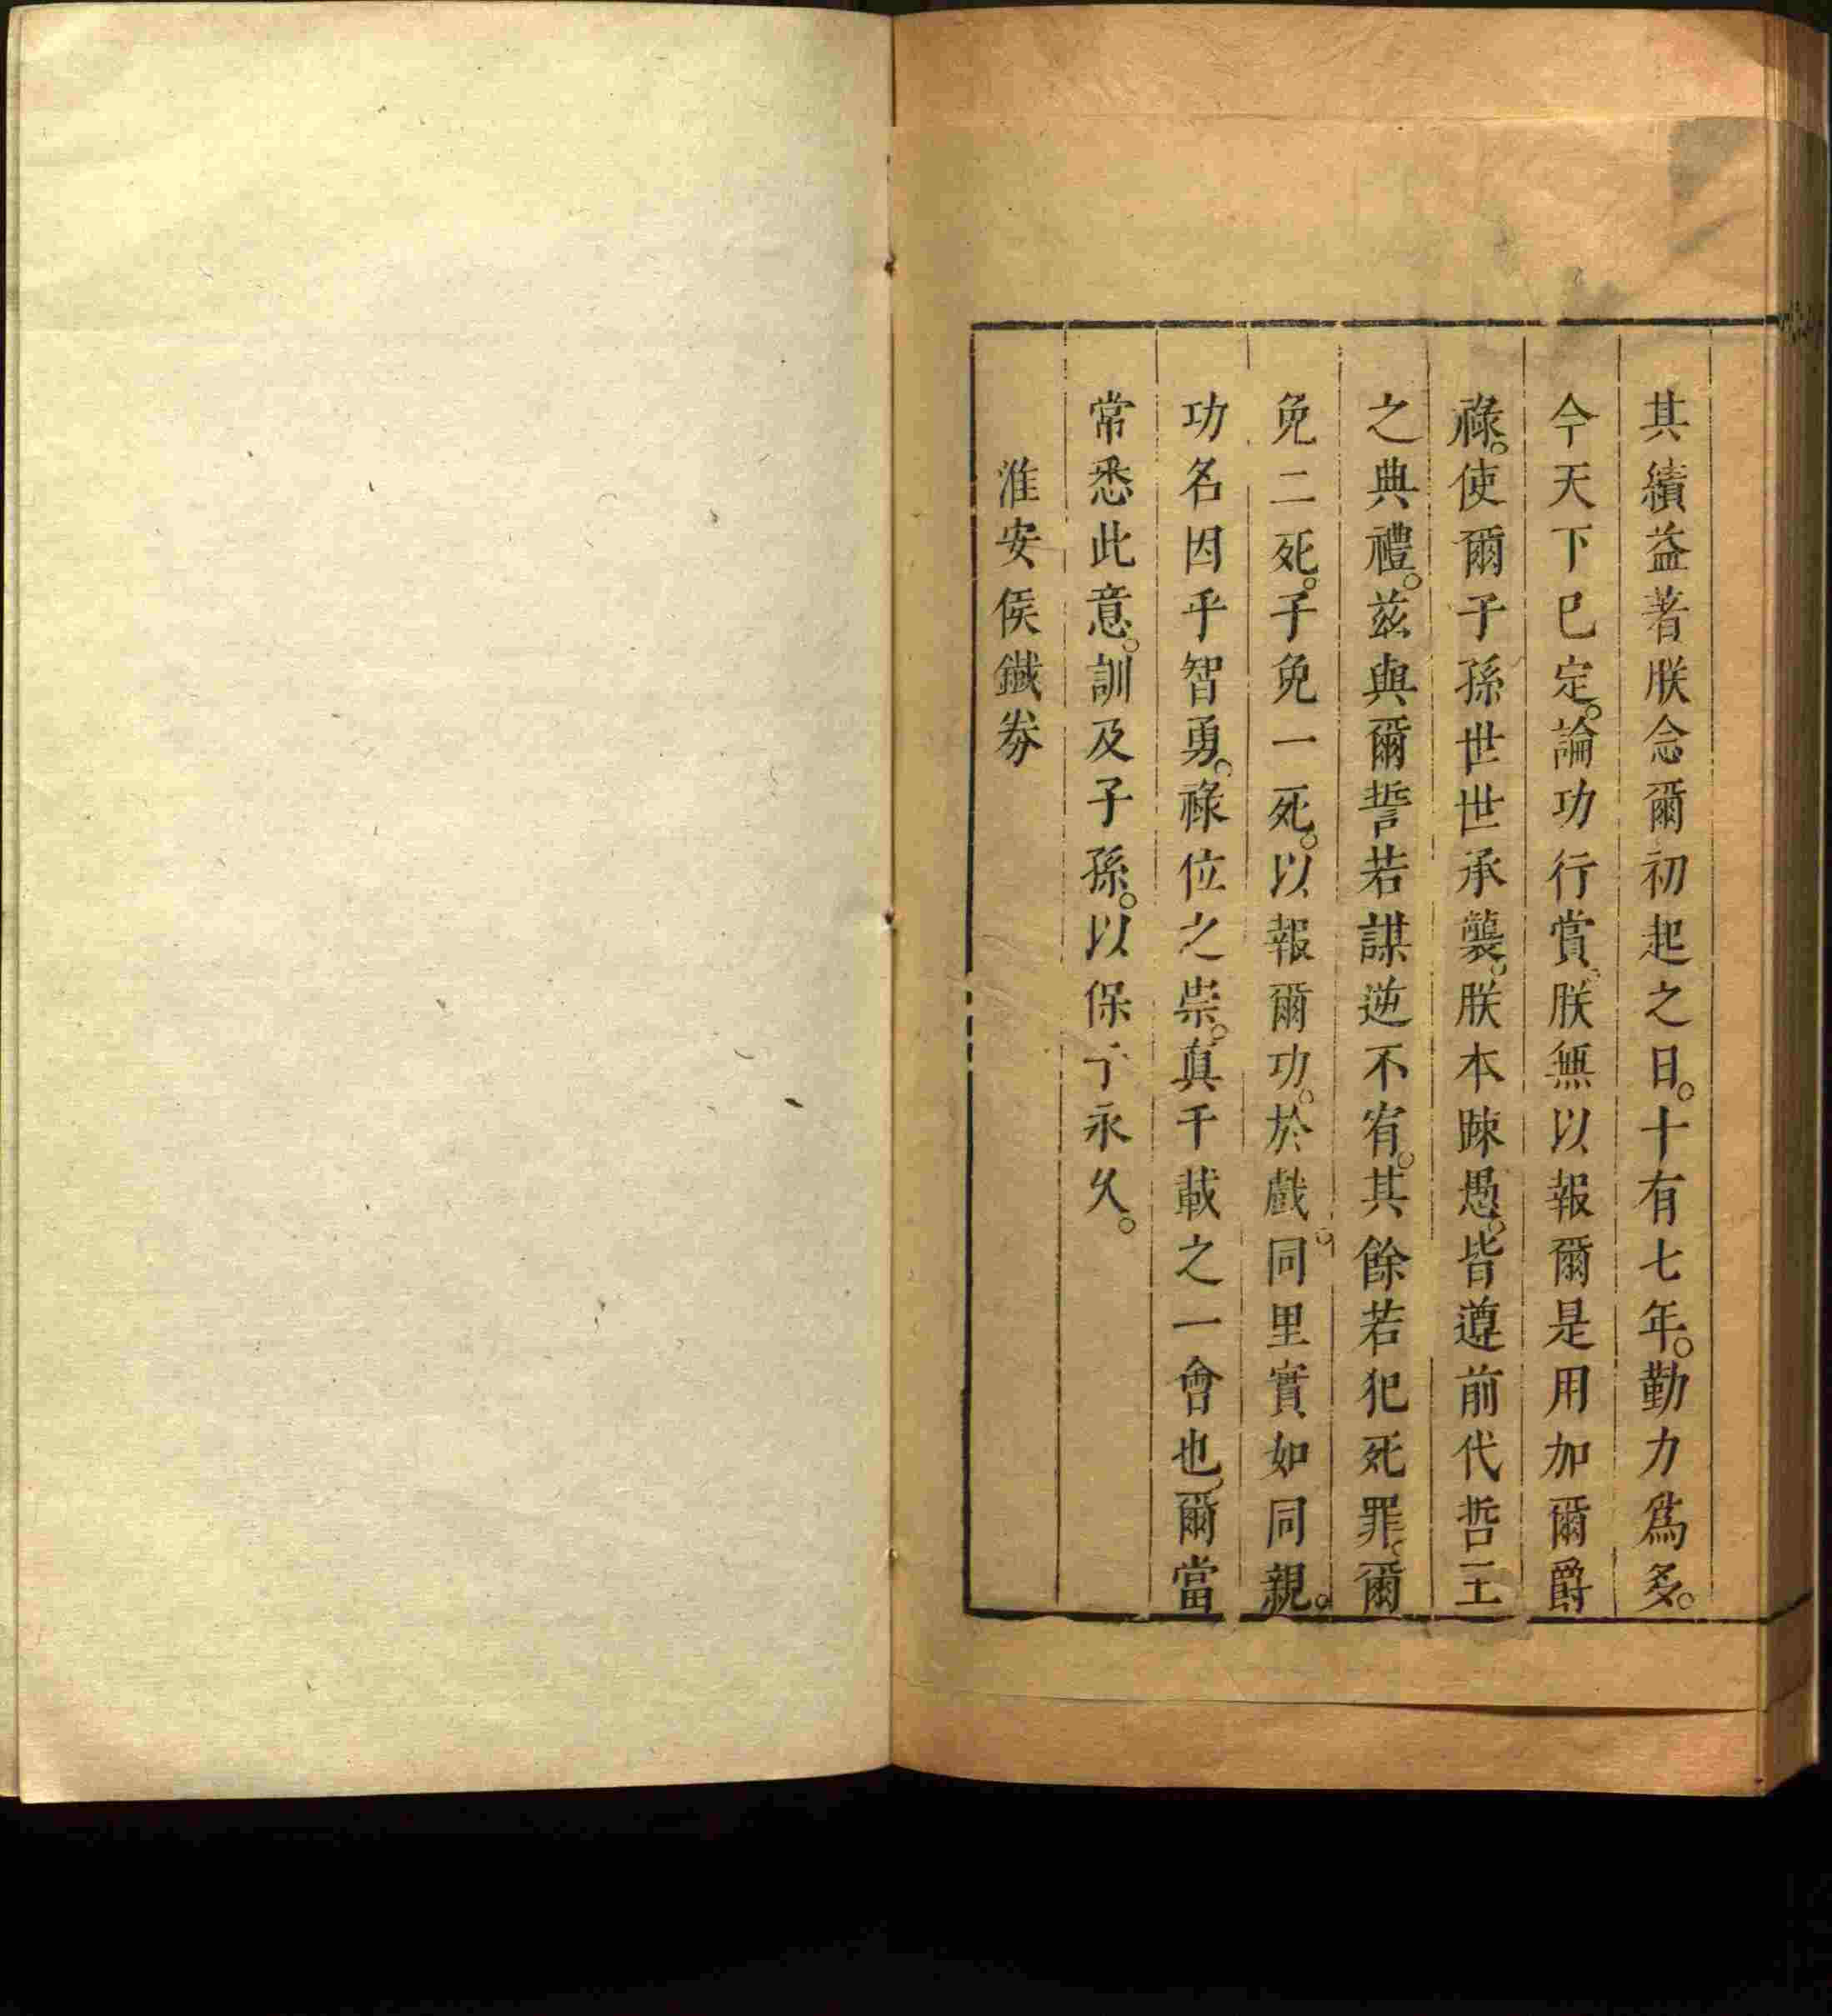 其績益著朕念爾初起之日。十有七年。勤力爲多。
今天下已定。論功行賞。朕無以報爾是用加爾爵
祿。使爾子孫世世承襲。朕本踈愚。皆遵前代哲王
之典禮。茲與爾誓若謀逆不宥。其餘若犯死罪。爾
免二死。子免一死。以報爾功。於戲。同里實如同親。
功名因乎智勇。祿位之崇。真千載之一會也。爾當
常悉此意。訓及子孫。以保于永久。
淮安侯鐵券